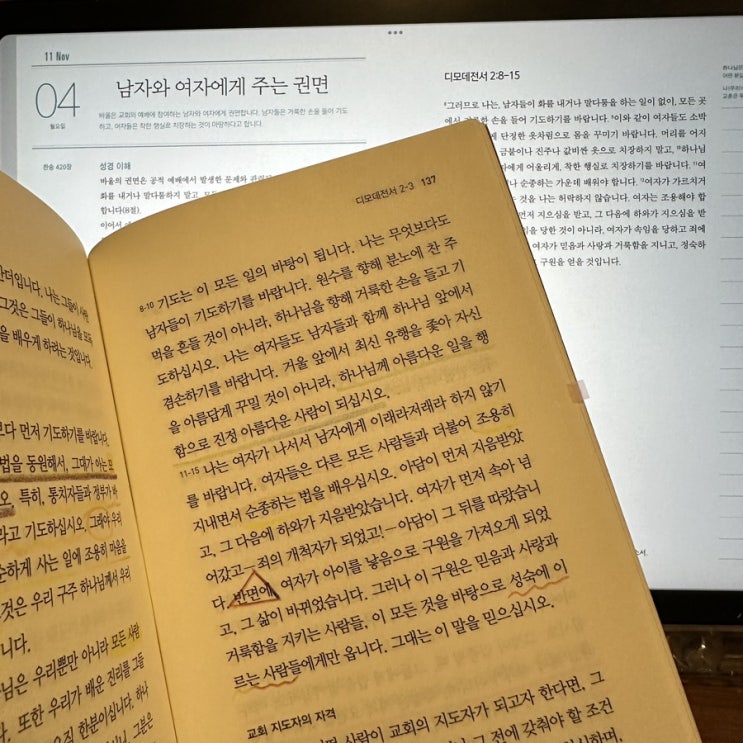 11 Nov
04
월요일
남자와 여자에게 주는 권면
바울은 교회의 예배에 참여하는 남자와 여자에게 권면합니다. 남자들은 거룩한 손을 들어 기도
하고, 여자들은 착한 행실로 치장하는 것이 마땅하다고 합니다.
찬송 420장
성경 이해
바울의 권면은 공적 예배에서 발생한 문제와 관련
화를 내거나 말다툼하지 말고
합니다(8절).
이어서
디모데전서 2:8-15
8그러므로 나는, 남자들이 화를 내거나 말다툼을 하는 일이 없이, 모든 곳
에서 거룩한 손을 들어 기도하기를 바랍니다. 9이와 같이 여자들도 소박
단정한 옷차림으로 몸을 꾸미기 바랍니다. 머리를 어지
금붙이나 진주나 값비싼 옷으로 치장하지 말고, 10하나님
에게 어울리게, 착한 행실로 치장하기를 바랍니다. 11여
순종하는 가운데 배워야 합니다. 12여자가 가르치거
것을 나는 허락하지 않습니다. 여자는 조용해야 합
먼저 지으심을 받고, 그 다음에 하와가 지으심을 받
임을 당한 것이 아니라, 여자가 속임을 당하고 죄에
여자가 믿음과 사랑과 거룩함을 지니고, 정숙하
구원을 얻을 것입니다.
디모데전서 2-3 137
8-10 기도는 이 모든 일의 바탕이 됩니다. 나는 무엇보다도
남자들이 기도하기를 바랍니다. 원수를 향해 분노에 찬 주
먹을 흔들 것이 아니라, 하나님을 향해 거룩한 손을 들고 기
도하십시오. 나는 여자들도 남자들과 함께 하나님 앞에서
겸손하기를 바랍니다. 거울 앞에서 최신 유행을 좇아 자신
을 아름답게 꾸밀 것이 아니라, 하나님께 아름다운 일을 행
함으로 진정 아름다운 사람이 되십시오.
11-15 나는 여자가 나서서 남자에게 이래라저래라 하지 않기
를 바랍니다. 여자들은 다른 모든 사람들과 더불어 조용히
지내면서 순종하는 법을 배우십시오. 아담이 먼저 지음받았
고, 그 다음에 하와가 지음받았습니다. 여자가 먼저 속아 넘
어갔고—죄의 개척자가 되었고!—아담이 그 뒤를 따랐습니
다. 반면에, 여자가 아이를 낳음으로 구원을 가져오게 되었
고, 그 삶이 바뀌었습니다. 그러나 이 구원은 믿음과 사랑과
거룩함을 지키는 사람들, 이 모든 것을 바탕으로 성숙에 이
르는 사람들에게만 옵니다. 그대는 이 말을 믿으십시오.
교회 지도자의 자격
사람이 교회의 지도자가 되고자 한다면, 그
그 전에 갖춰야 할 조건
그것은 그들이 하나님을 모독
을 배우게 하려는 것입니다.
보다 먼저 기도하기를 바랍니다.
법을 동원해서, 그대가 아는 모
오. 특히, 통치자들과 정부가 바
라고 기도하십시오. 그래야 우리
순하게 사는 일에 조용히 마음을
것은 우리 구주 하나님께서 우리
니다.
님은 우리뿐만 아니라 모든 사람
다. 또한 우리가 배운 진리를 그들
오직 한분이십니다. 하나